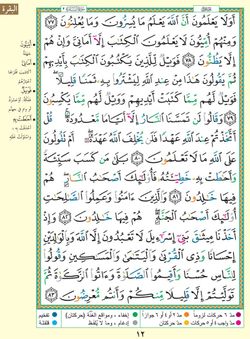 البقرة
أَوَلَا يَعْلَمُونَ أَنَّ ٱللَّهَ يَعْلَمُ مَا يُسِرُّونَ وَمَا يُعْلِنُونَ ٧٧
وَمِنْهُمْ أُمِّيُّونَ لَا يَعْلَمُونَ ٱلْكِتَٰبَ إِلَّآ أَمَانِىَّ وَإِنْ هُمْ
إِلَّا يَظُنُّونَ ٧٨ فَوَيْلٌ لِّلَّذِينَ يَكْتُبُونَ ٱلْكِتَٰبَ بِأَيْدِيهِمْ
ثُمَّ يَقُولُونَ هَٰذَا مِنْ عِندِ ٱللَّهِ لِيَشْتَرُوا۟ بِهِۦ ثَمَنًا قَلِيلًا
فَوَيْلٌ لَّهُم مِّمَّا كَتَبَتْ أَيْدِيهِمْ وَوَيْلٌ لَّهُم مِّمَّا يَكْسِبُونَ
٧٩ وَقَالُوا۟ لَن تَمَسَّنَا ٱلنَّارُ إِلَّآ أَيَّامًا مَّعْدُودَةً قُلْ
أَتَّخَذْتُمْ عِندَ ٱللَّهِ عَهْدًا فَلَن يُخْلِفَ ٱللَّهُ عَهْدَهُۥٓ أَمْ تَقُولُونَ
عَلَى ٱللَّهِ مَا لَا تَعْلَمُونَ ٨٠ بَلَىٰ مَن كَسَبَ سَيِّئَةً
وَأَحَٰطَتْ بِهِۦ خَطِيٓـَٔتُهُۥ فَأُو۟لَٰٓئِكَ أَصْحَٰبُ ٱلنَّارِ
هُمْ فِيهَا خَٰلِدُونَ ٨١ وَٱلَّذِينَ ءَامَنُوا۟ وَعَمِلُوا۟ ٱلصَّٰلِحَٰتِ
أُو۟لَٰٓئِكَ أَصْحَٰبُ ٱلْجَنَّةِ هُمْ فِيهَا خَٰلِدُونَ ٨٢ وَإِذْ
أَخَذْنَا مِيثَٰقَ بَنِىٓ إِسْرَٰٓءِيلَ لَا تَعْبُدُونَ إِلَّا ٱللَّهَ وَبِٱلْوَٰلِدَيْنِ
إِحْسَانًا وَذِى ٱلْقُرْبَىٰ وَٱلْيَتَٰمَىٰ وَٱلْمَسَٰكِينِ وَقُولُوا۟
لِلنَّاسِ حُسْنًا وَأَقِيمُوا۟ ٱلصَّلَوٰةَ وَءَاتُوا۟ ٱلزَّكَوٰةَ ثُمَّ
تَوَلَّيْتُمْ إِلَّا قَلِيلًا مِّنكُمْ وَأَنتُم مُّعْرِضُونَ ٨٣
١٢